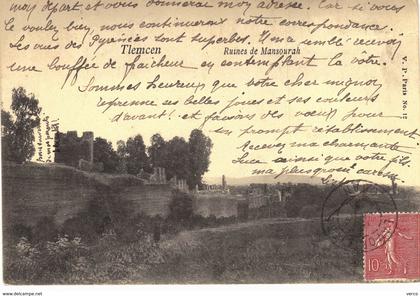 mon départ et vous donnerai mon adresse. Car si vous
le voulez bien nous continuerons notre correspondance.
Les vues des Pyrénées sont superbes. Il m'a semblé recevoir
une bouffée de fraîcheur en contemplant la vôtre.
Tlemcen
Ruines de Mansourah
Sommes heureux que votre cher mignon
reprenne ses belles joues et ses couleurs
d'avant et faisons des vœux pour
un prompt rétablissement.
Recevez ma charmante
Luce ainsi que votre fils
ma plus grosse caresse
V. P. Paris No. 12
10
www.delcampe.net